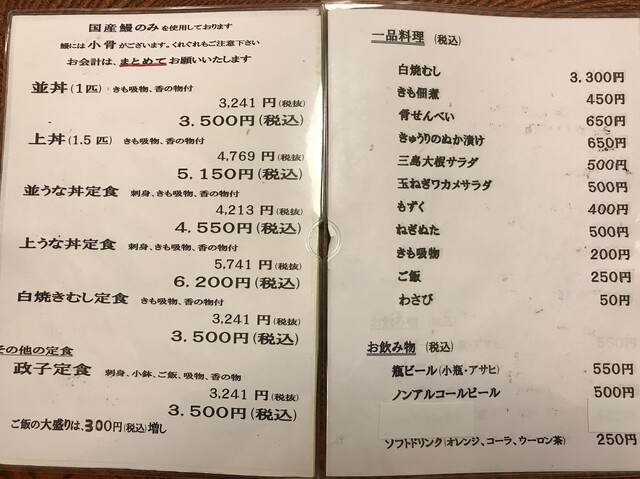 国産鰻のみを使用しております
鰻には小骨がございます。くれぐれもご注意下さい
お会計は、まとめてお願いいたします
並丼(1匹) きも吸物、香の物付
3,241 円(税抜)
3.500円(税込)
上丼(1.5匹) きも吸物、香の物付
4,769 円(税抜)
5.150円(税込)
並うな丼定食 刺身、きも吸物、香の物付
4,213 円(税抜)
4.550円(税込)
上うな丼定食 刺身、きも吸物、香の物付
5,741 円(税抜)
6.200円(税込)
白焼きむし定食 きも吸物、香の物付
3,241 円(税抜)
3.500円(税込)
その他の定食
政子定食 刺身、小鉢、ご飯、吸物、香の物
3,241 円(税抜)
3.500円(税込)
ご飯の大盛りは、300円(税込)増し
一品料理 (税込)
白焼むし 3,300円
きも佃煮 450円
骨せんべい 650円
きゅうりのぬか漬け 650円
三島大根サラダ 500円
玉ねぎワカメサラダ 500円
もずく 400円
ねぎぬた 500円
きも吸物 200円
ご飯 250円
わさび 50円
お飲み物 (税込)
瓶ビール(小瓶・アサヒ) 550円
ノンアルコールビール 500円
ソフトドリンク(オレンジ、コーラ、ウーロン茶) 250円